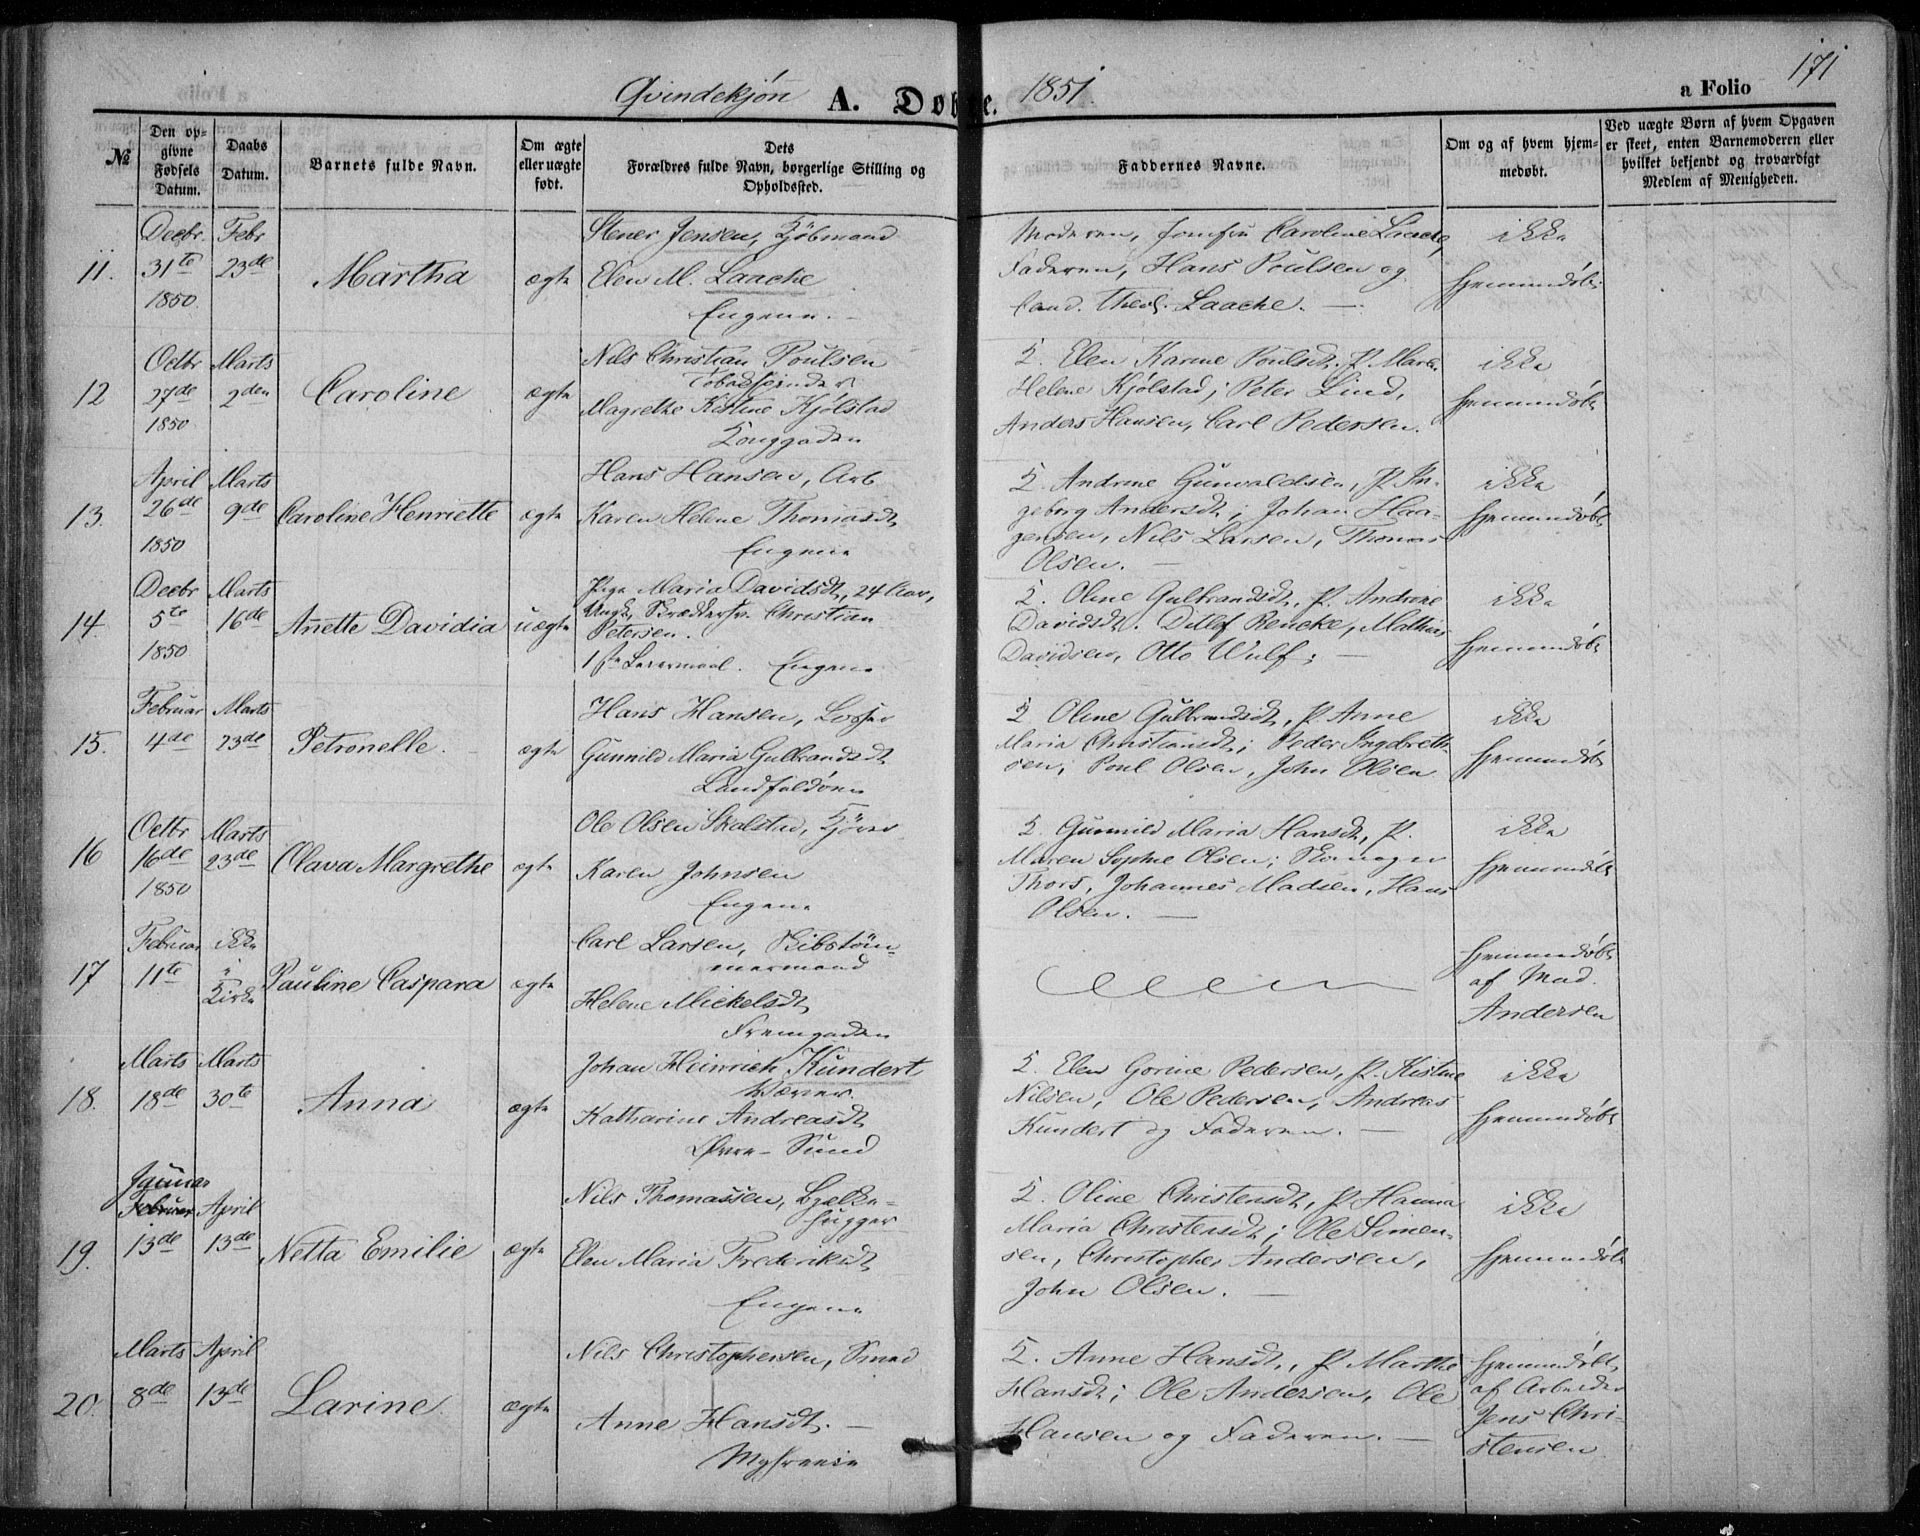 Qvindekjøn A. Døbte. 1851. a Folio 171
№
Den op-
givne
Fødsels
Datum.
Daabs
Datum.
Barnets fulde Navn.
Om ægte
eller uægte
født.
Dets
Forældres fulde Navn, borgerlige Stilling og
Opholdssted.
Faddernes Navne.
Om og af hvem hjem-
medøbt.
Ved uægte Børn af hvem Opgaven
er skeet, enten Barnemoderen eller
hvilket bekjendt og troværdigt
Medlem af Menigheden.
11.
Decbr.
31te
1850
Febr
23de
Martha
ægte
Stener Jensen, Kjøbmand
Elen M. Laache
Engene.
Moderen, Jomfru Caroline Laache,
Faderen, Hans Poulsen og
Cand. theol. Laache.
ikke
hjemmedøbt
12
Octbr
27de
1850
Marts
2den
Caroline
ægte
Nils Christian Poulsen
Magrethe Kistine Kjølstad
Konggaden
K. Elen Karine Poulsdt, P. Maren
Helene Kjølstad; Peter Lind,
Anders Hansen, Carl Pedersen.
ikke
hjemmedøbt
13.
April
26de
1850
Marts
9de
Caroline Henriette
ægte
Hans Hansen, Arb
Karen Helene Thomasdt
Engene
K. Andrine Gunvaldsen, P. In-
geborg Andersdt; Johan Haa-
gensen, Nils Larsen, Thomas
Olsen.
ikke
hjemmedøbt
14.
Decbr
5te
1850
Marts
16de
Anette Davidia
uægte
Pige Maria Davidsdt, 24 Aar,
Ungk. Skræddersv. Christian
Petersen.
1ste Leiermaal. Engene
K. Oline Gulbrandsdt, P. Andrine
Davidsdt. Ditlef Rencke, Mathias
Davidsen, Otto Wulf;
ikke
hjemmedøbt
15.
Februar
4de
Marts
23de
Petronelle.
ægte
Hans Hansen, Losser
Gunnild Maria Gulbrandsdt
Landfaldøen
K. Oline Gulbrandsdt, P. Anne
Maria Christiansdt; Peder Ingebreth-
sen, Poul Olsen, John Olsen
ikke
hjemmedøbt
16
Octbr
16de
1850
Marts
23de
Olava Margrethe
ægte
Ole Olsen Skalstad,
Karen Johnsen
Engene
K. Gunnild Maria Hansdt, P.
Maren Sophie Olsen; Skomager
Thors, Johannes Madsen, Hans
Olsen.
ikke
hjemmedøbt
17
Februar
11te
ikke
i
Kirke
Pauline Caspara
ægte
Carl Larsen, Skibstøm-
mermand
Helene Mickelsdt
Fremgaden
hjemmedøbt
af Mad.
Andersen
18.
Marts
18de
Marts
30te
Anna
ægte
Johan Heinrich Kundert
Væver
Katharine Andreasdt
Øvre-Sund
K. Elen Gorine Pedersen, P. Kistine
Nilsen; Ole Pedersen, Andreas
Kundert og Faderen.
ikke
hjemmedøbt
19.
Januar
Februar
13de
April
13de
Netta Emilie
ægte
Nils Thomassen, Bjelke-
hugger
Elen Maria Frederiksdt
Engene
K. Oline Christensdt, P. Hanna
Maria Christensdt; Ole Simen-
sen, Christopher Andersen,
John Olsen.
ikke
hjemmedøbt
20.
Marts
8de
April
13de
Larine
ægte
Nils Christophersen, Smed
Anne Hansdt.
Myhrene
K. Anne Hansdt, P. Marthe
Hansdt; Ole Andersen, Ole
Hansen og Faderen.
hjemmedøbt
af Arbeider
Jens Chri-
stensen